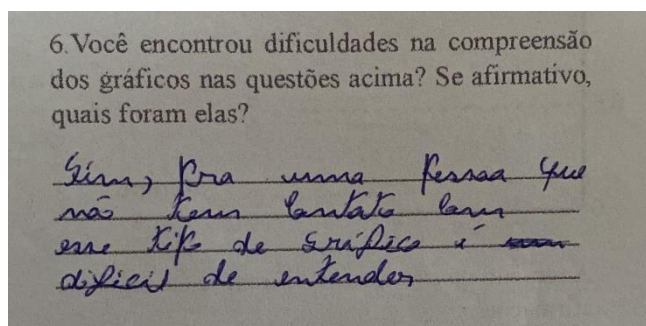 6.Você encontrou dificuldades na compreensão
dos gráficos nas questões acima? Se afirmativo,
quais foram elas?
Sim, pra uma pessoa que
não tem contato com
esse tipo de gráfico é
dificil de entender